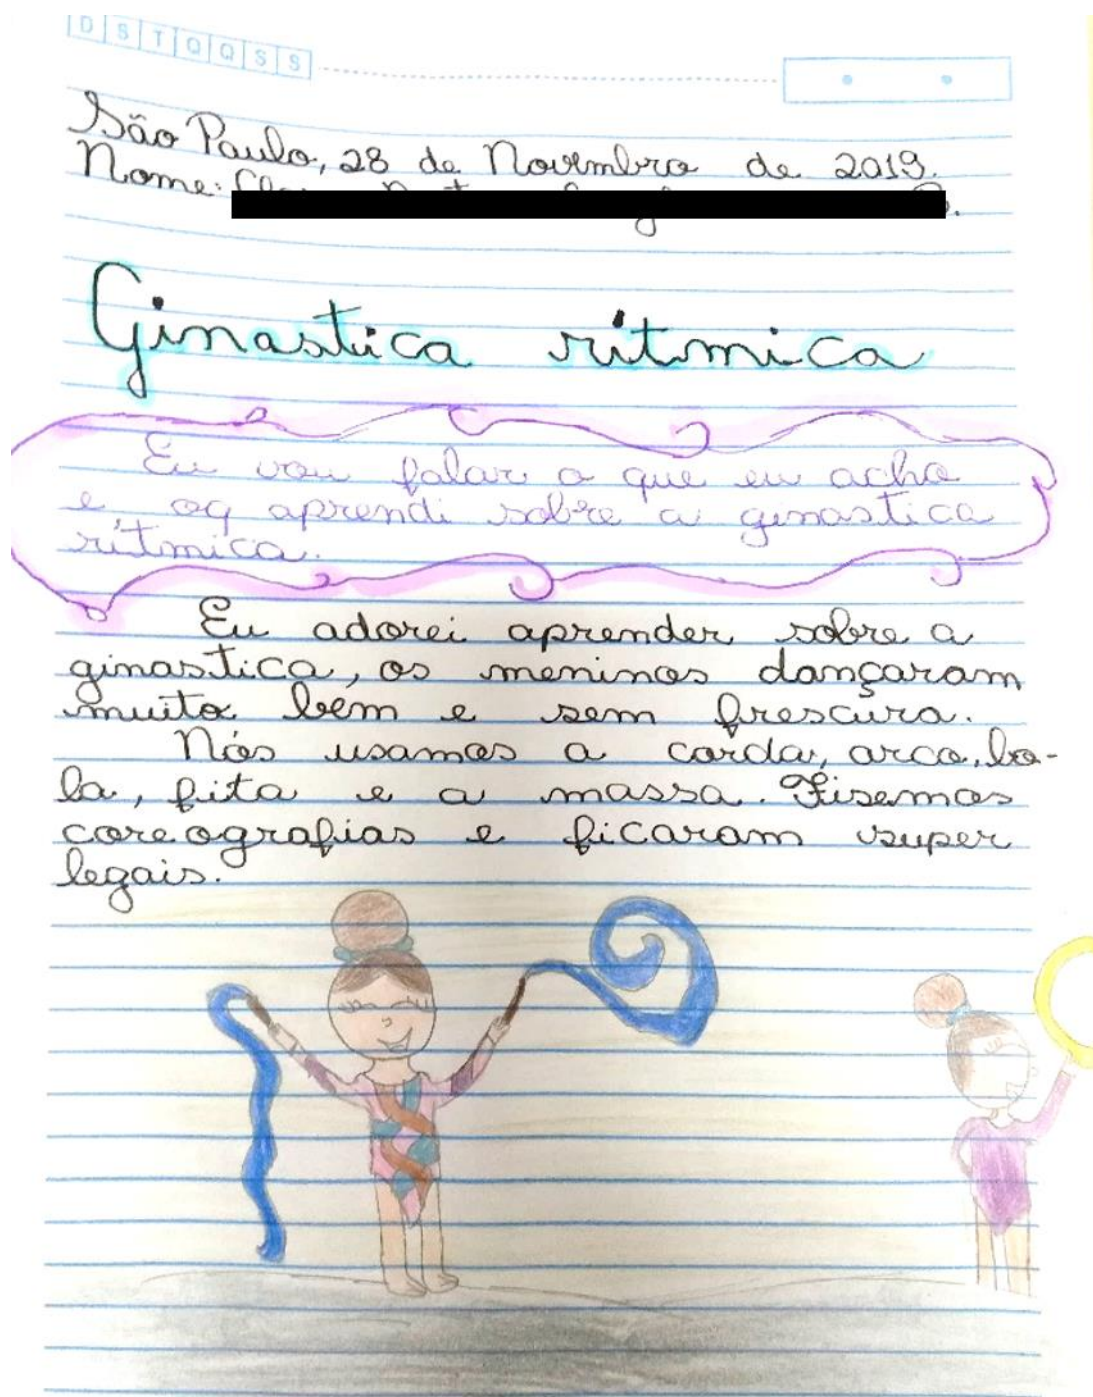 D S T Q Q S S
São Paulo, 28 de Novembro de 2019.
Nome:
Ginastica rítmica
Eu vou falar o que eu acho
e oq aprendi sobre a ginastica
rítmica.
Eu adorei aprender sobre a
ginastica, os meninos dançaram
muito bem e sem frescura.
Nós usamos a corda, arco, bo-
la, fita e a massa. Fisemos
coreografias e ficaram super
legais.